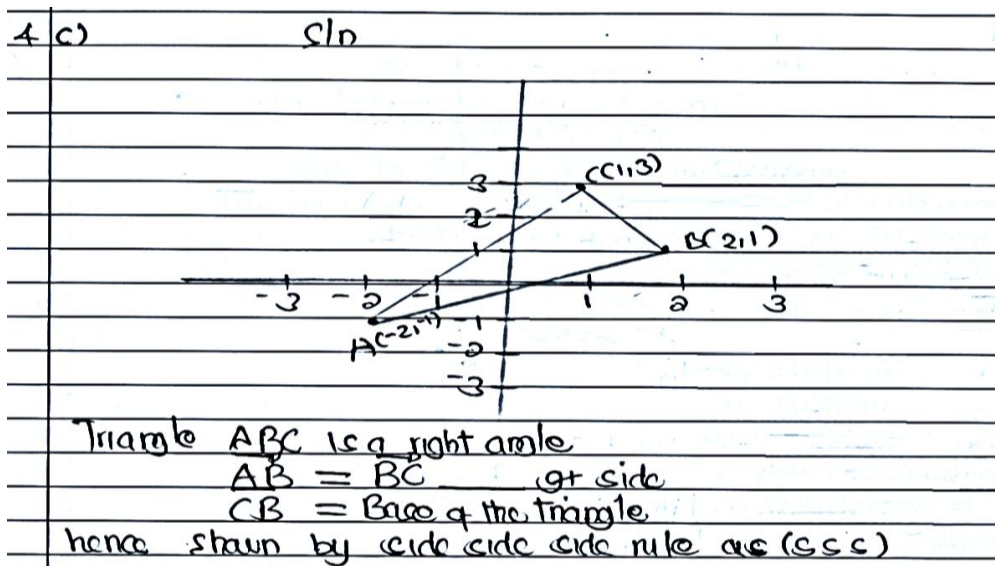 4 c) S/n
C(1,3)
3
2
B(2,1)
1
-3 -2 -1 1 2 3
A(-2,-1) -1
-2
-3
Triangle ABC is a right angle
AB = BC ____ gt side
CB = Base of the Triangle
hence shown by side side side rule as (SSS)